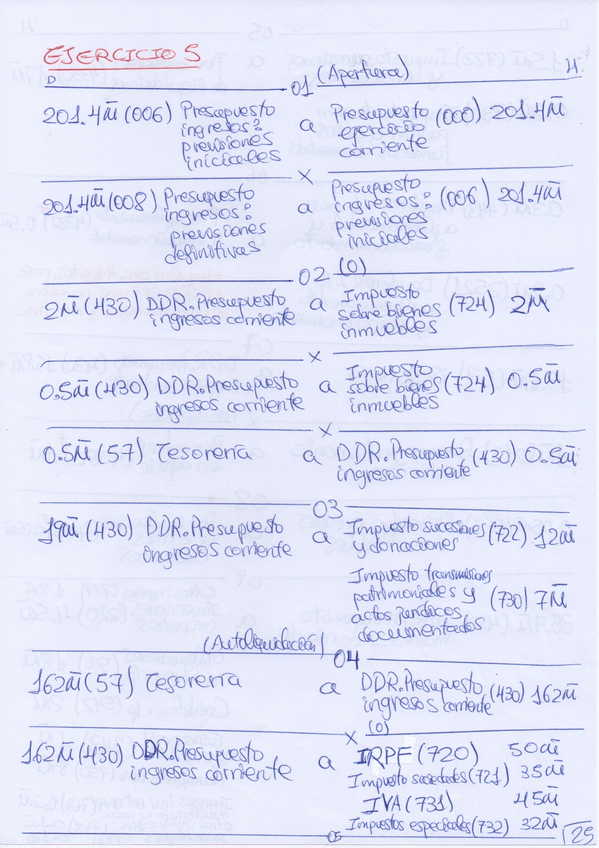 EJERCICIO 5
D
01 (Apertura)
H
201.4m̄ (006) Presupuesto ingresos: previsiones iniciales a Presupuesto ejercicio corriente (000) 201.4m̄
x
201.4m̄ (008) Presupuesto ingresos: previsiones definitivas a Presupuesto ingresos: previsiones iniciales (006) 201.4m̄
02 (0)
2m̄ (430) DDR. Presupuesto ingresos corriente a Impuesto sobre bienes inmuebles (724) 2m̄
x
0.5m̄ (430) DDR. Presupuesto ingresos corriente a Impuesto sobre bienes inmuebles (724) 0.5m̄
x
0.5m̄ (57) Tesorería a DDR. Presupuesto ingresos corriente (430) 0.5m̄
03
19m̄ (430) DDR. Presupuesto ingresos corriente a Impuesto sucesiones y donaciones (722) 12m̄
Impuesto transmisiones patrimoniales y actos jurídicos documentados (730) 7m̄
(Autoliquidación) 04
162m̄ (57) Tesorería a DDR. Presupuesto ingresos corriente (430) 162m̄
(0)
x
162m̄ (430) DDR. Presupuesto ingresos corriente a IRPF (720) 50m̄
Impuesto sociedades (721) 35m̄
IVA (731) 45m̄
Impuestos especiales (732) 32m̄
05
25